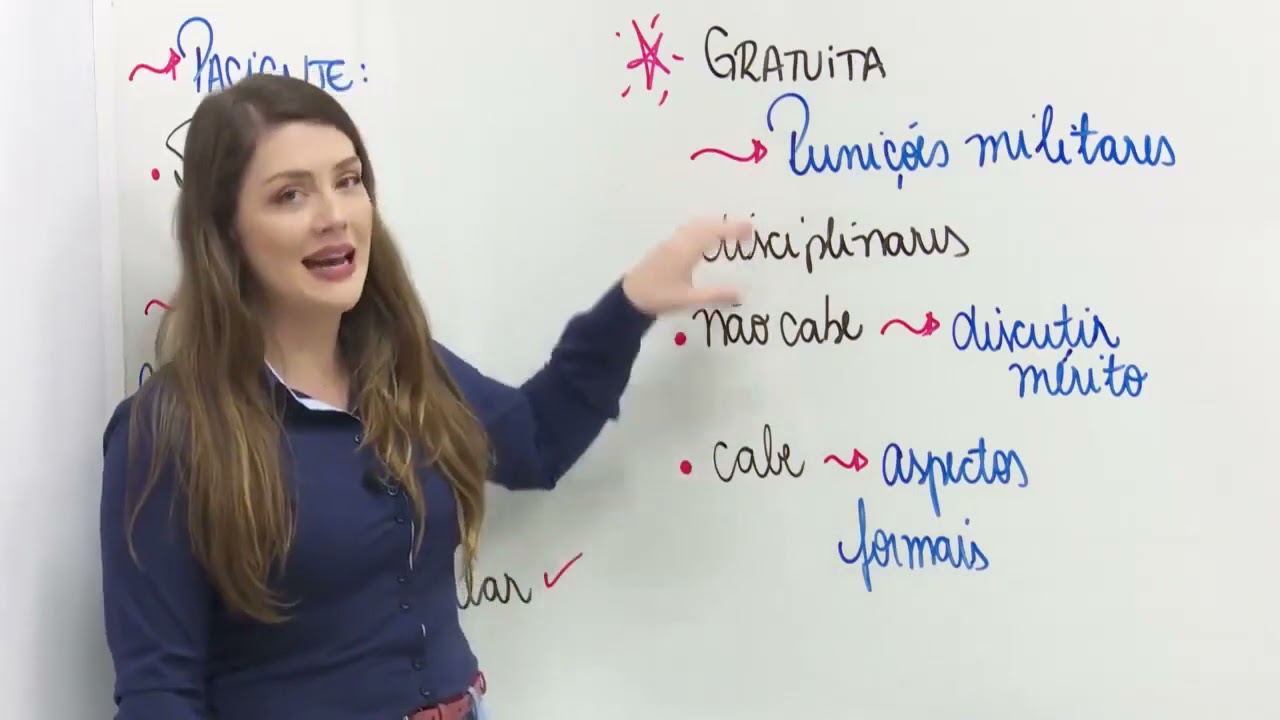 PACIENTE:
GRATUITA
Punições militares
disciplinares
não cabe discutir
mérito
cabe aspectos
formais